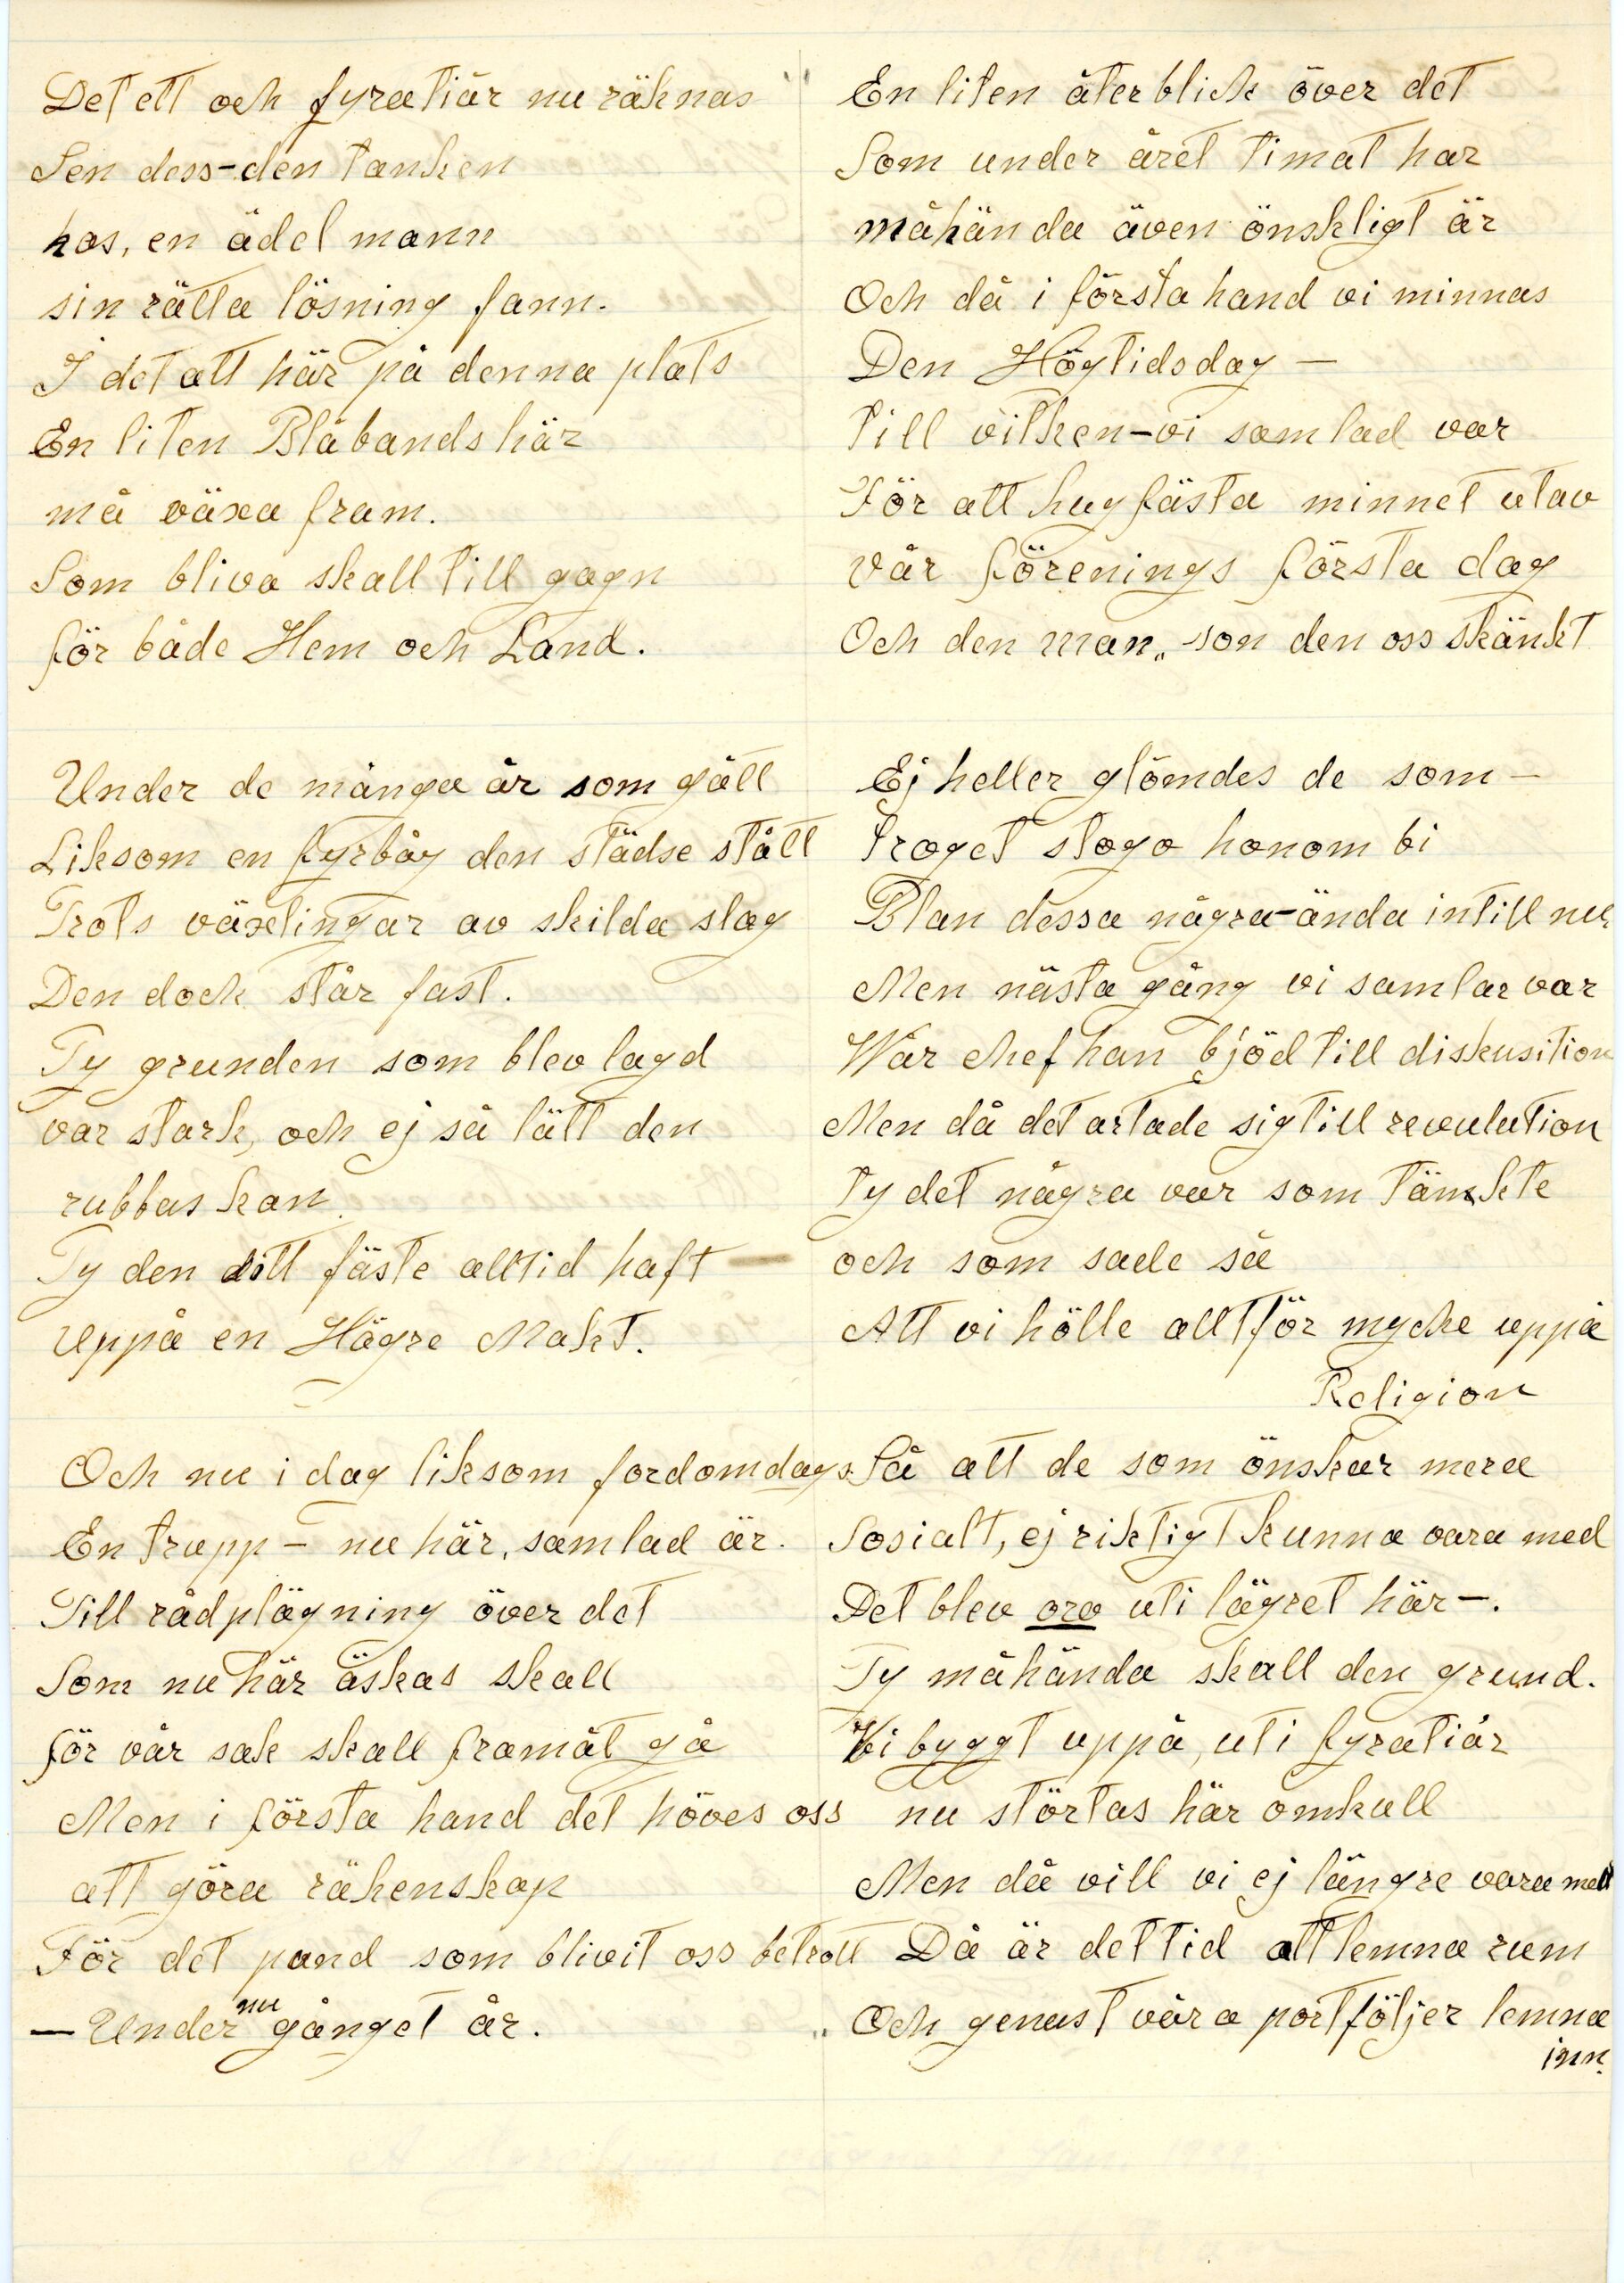 Det ett och fyratiår nu räknas
Sen dess-den tanken
hos, en ädel mann
sin rätta lösning fann.
I det att här på denna plats
En liten Blåbandshär
må växa fram.
Som bliva skall till gagn
för både Hem och Land.
Under de många år som gått
Liksom en fyrbåg den städse stått
Trots växlingar av skilda slag
Den dock står fast.
Ty grunden som blev lagd
var stark, och ej så lätt den
rubbas kan.
Ty den sitt fäste alltid haft —
Uppå en Högre Makt.
Och nu i dag liksom fordomdags.
En trupp – nu här, samlad är.
Till rådplägning över det
Som nu här äskas skall
för vår sak skall framåt gå
Men i första hand det höves oss
att göra räkenskap
För det pund som blivit oss betrott
— Under nu gånget år.
En liten återblick över det
Som under året timat har
måhända även önskligt är
Och då i första hand vi minnas
Den Högtidsdag —
Till vilken-vi samlad var
För att hugfästa minnet utav
Vår förenings första dag
Och den man„ son den oss skänkt
Ej heller glömdes de som –
troget stogo honom bi
Blan dessa några-ända intill nu,
Men nästa gång vi samlar var
Wår chef han bjöd till diskusition
Men då det artade sig till revulution
Ty det några var som tänkte
och som sade så
Att vi hölle alltför mycke uppå
Religion
Så att de som önskar mera
Sosialt, ej riktigt kunna vara med
Det blev oro uti lägret här –.
Ty måhända skall den grund.
Vi byggt uppå, uti fyratiår
nu störtas här omkull
Men då vill vi ej längre vara med
Då är det tid att lemna rum
„ Och genast våra portföljer lemna
inn.